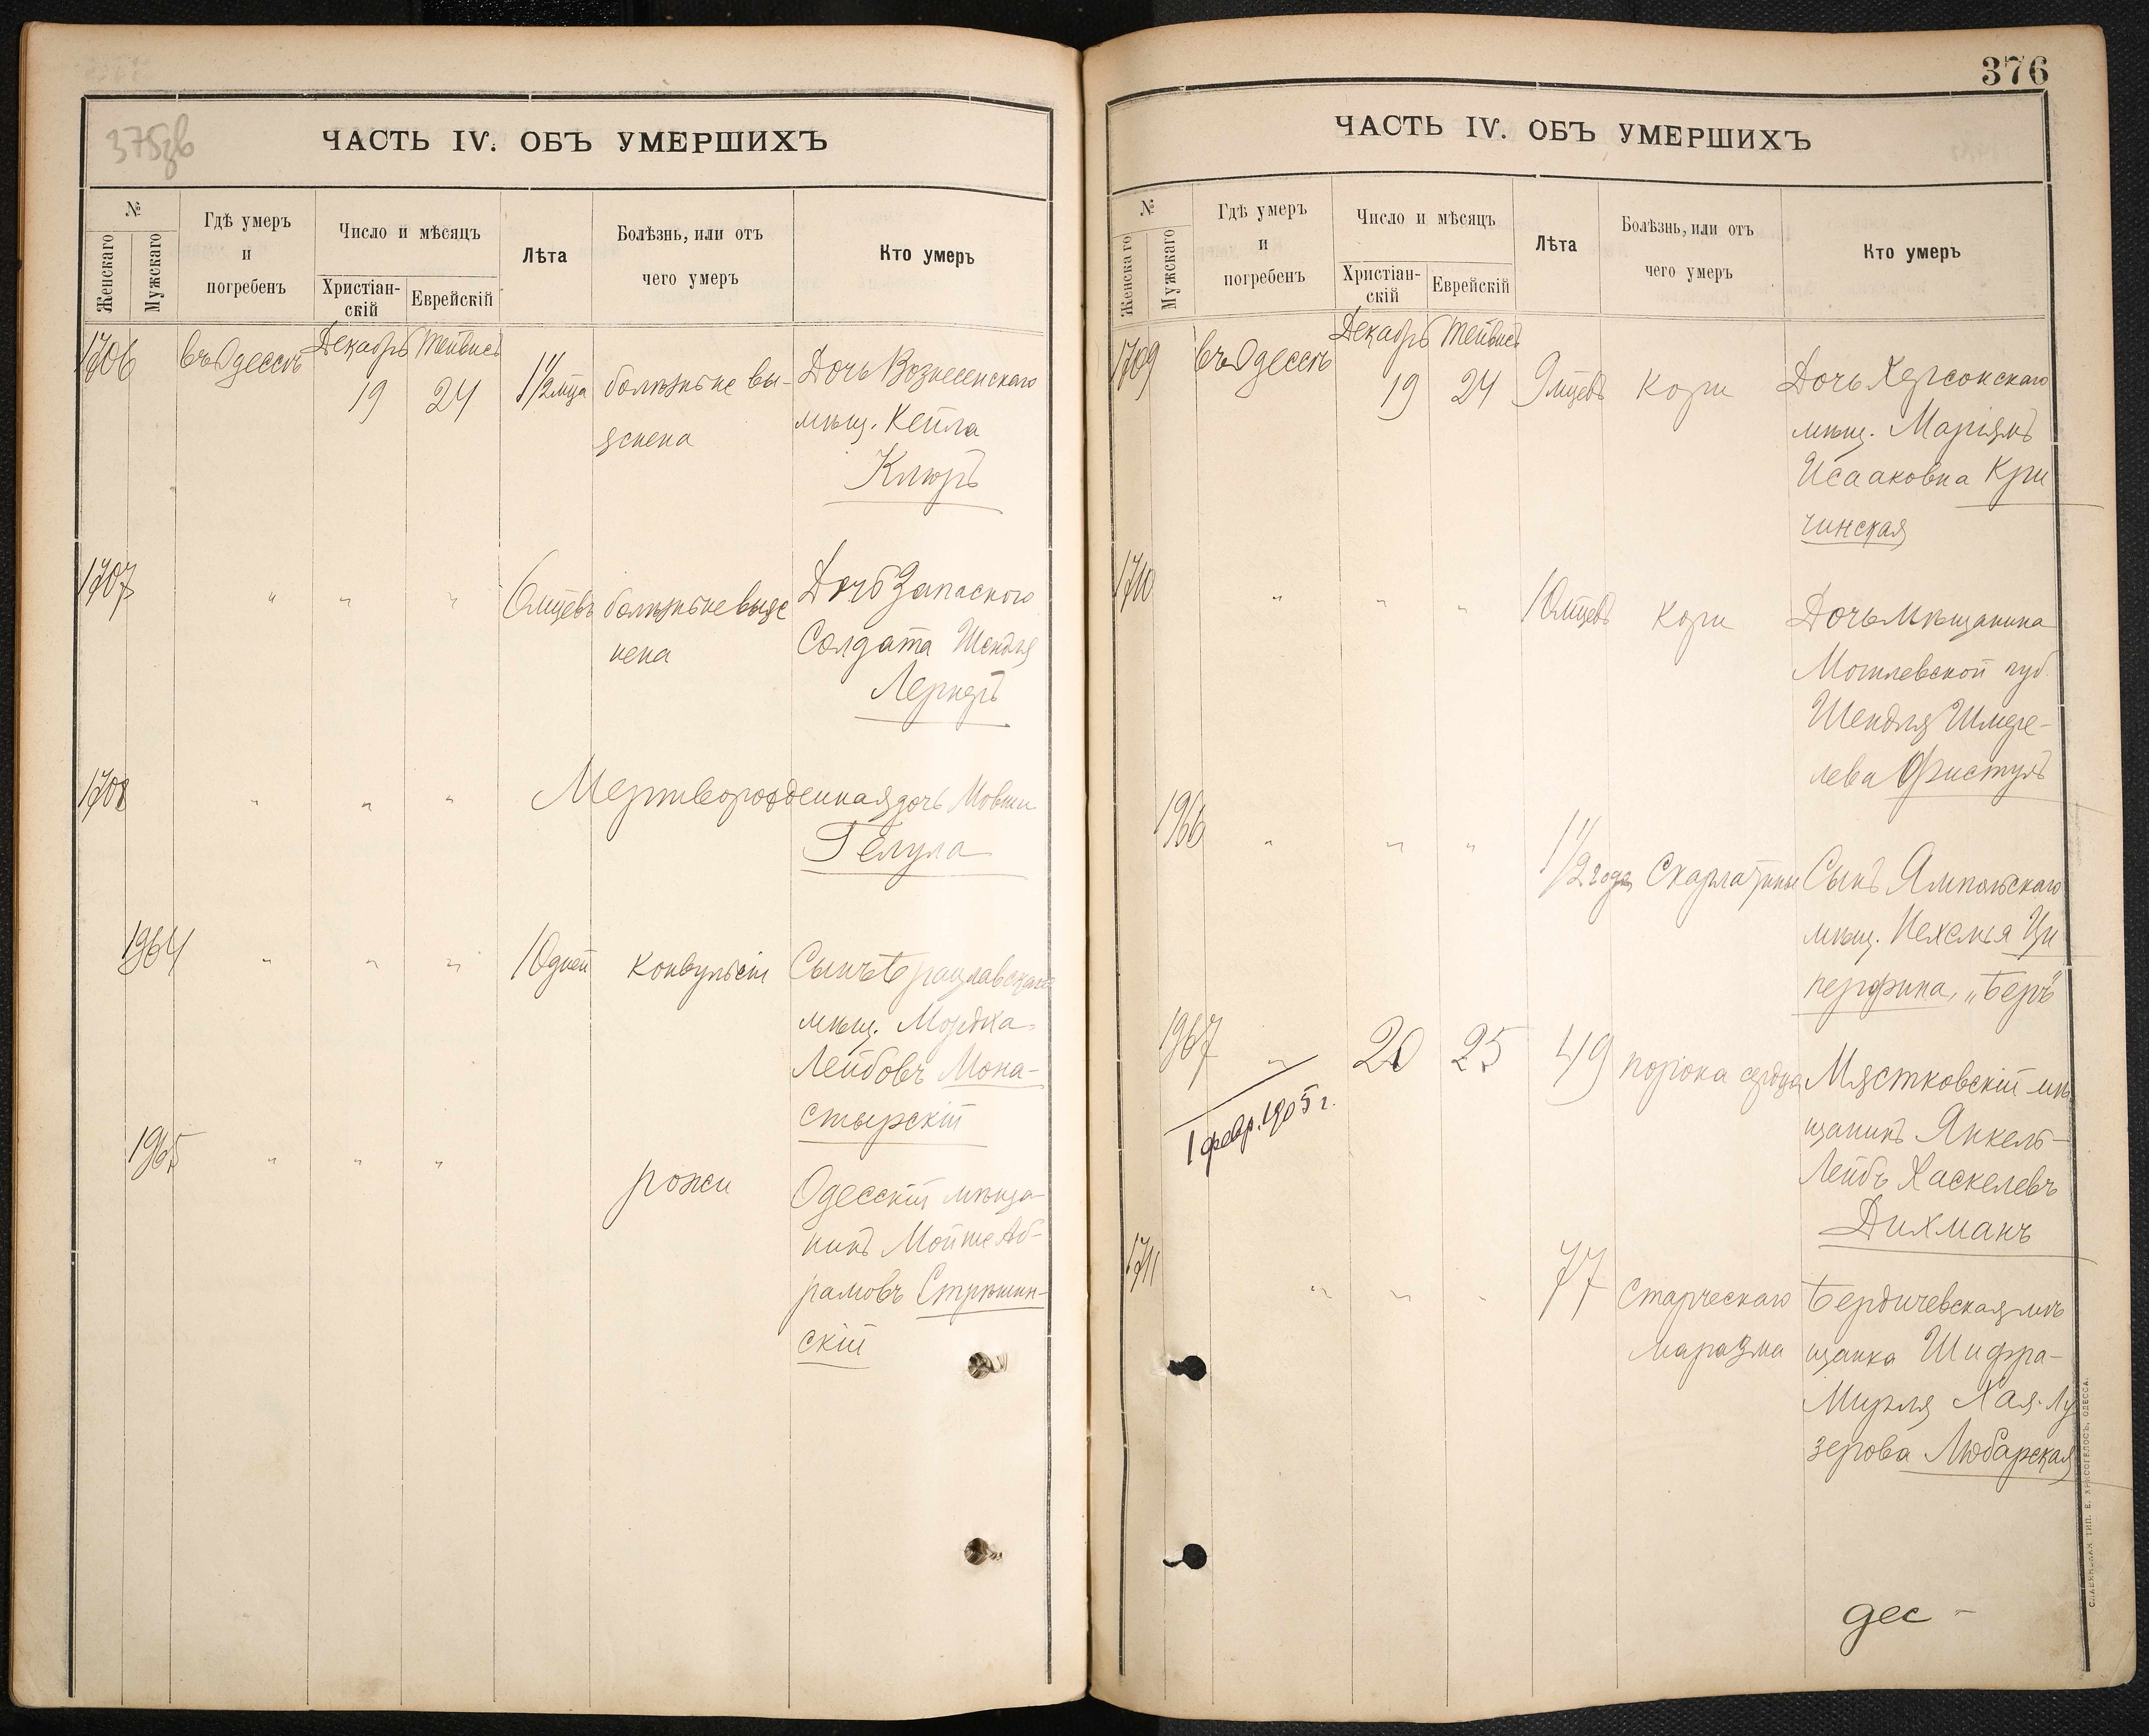 375зв
ЧАСТЬ IV. ОБЪ УМЕРШИХЪ
№
Женскаго
Мужскаго
Гдѣ умеръ
и
погребенъ
Число и мѣсяцъ
Христіан-
скій
Еврейскій
Лѣта
Болѣзнь, или отъ
чего умеръ
Кто умеръ
1706
въ Одессѣ
Декабрь
19
Тейвисъ
24
1 1/2 мца
болѣзнь не вы-
яснена
Дочь Вознесенскаго
мѣщ. Кейла
Клюръ
1707
" " "
6 мцевъ
болѣзнь не выяс
нена
Дочь Запаснаго
Солдата Шендля
Лернеръ
1708
" " "
Мертворожденная дочь Мовши
Гелула
1964
" " "
10 дней
конвульсіи
Сынъ Брацлавскаго
мѣщ. Мордка-
Лейбовъ Мона-
стырскій
1965
" " "
рожи
Одесскій мѣща-
нинъ Мойше Аб-
рамовъ Стрѣшин-
скій
376
ЧАСТЬ IV. ОБЪ УМЕРШИХЪ
№
Женскаго
Мужскаго
Гдѣ умеръ
и
погребенъ
Число и мѣсяцъ
Христіан-
скій
Еврейскій
Лѣта
Болѣзнь, или отъ
чего умеръ
Кто умеръ
1709
въ Одессѣ
Декабрь
19
Тейвисъ
24
9 мцевъ
Кори
Дочь Херсонскаго
мѣщ. Маріямъ
Исааковна Кри
чинская
1710
" " "
10 мцевъ
Кори
Дочь Мѣщанина
Могилевской губ.
Шендля Шмере-
лева Фистулъ
1966
" " "
1 1/2 года
Скарлатины
Сынъ Ямпольскаго
мѣщ. Пехемья Ци
перфина, „Беръ"
1967
"
20
25
49
порока сердца
Мястковскій мѣ
щанинъ Янкель-
Лейбъ Хаскелевъ
Дихманъ
1 февр. 1905 г.
1711
" " "
77
Старческаго
маразма
Бердичевская мѣ
щанка Шифра-
Мирля Хая-Лу
зерова Любарская
дес -
СЛАВЯНСКАЯ ТИП. Е. ХРИСОГЕЛОСЪ, ОДЕССА.